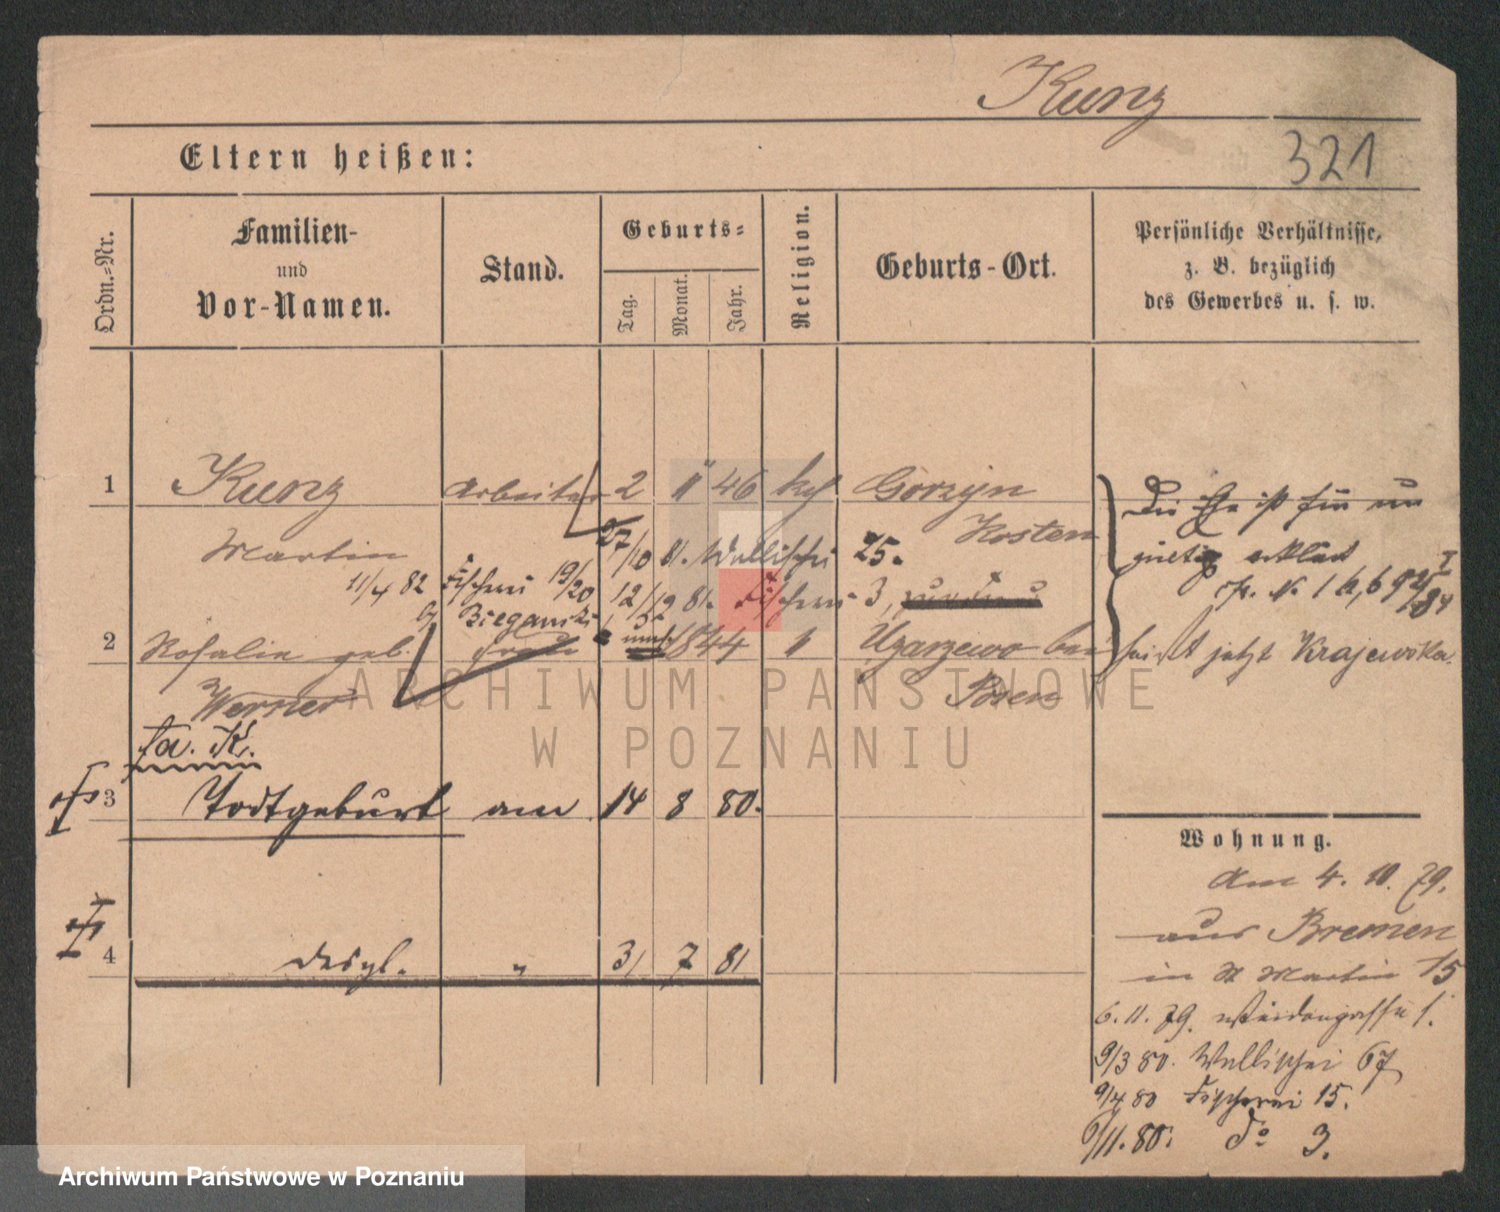 Kunz
321
Eltern heißen:
Ordn.-Nr.
Familien-
und
Vor-Namen.
Stand.
Geburts-
Tag.
Monat.
Jahr.
Religion.
Geburts-Ort.
Persönliche Verhältnisse,
z. B. bezüglich
des Gewerbes u. s. w.
1 Kunz Arbeiter 2 11 46 kf Gorzyn
Kosten
Martin
27/10 81. Wallischei 25.
11/4 82 Fischerei 19/20
12/12 81. Fischerei 3,
Bieganski
2 Rosalie geb. 1844 Uzarzewo bei
Werner Posen
Die Ehe ist für un
gültig erklärt
heißt jetzt Krajewska
fa. K.
3 Todtgeburt am 14 8 80.
4 desgl. " 3 7 81
Wohnung.
Am 4. 10. 79.
aus Bremen
in St Martin 15
6. 11. 79. 1.
9/3 80. Wallischei 67
9/4 80 Fischerei 15.
6/11. 80. do 3.
ARCHIWUM PAŃSTWOWE
W POZNANIU
Archiwum Państwowe w Poznaniu